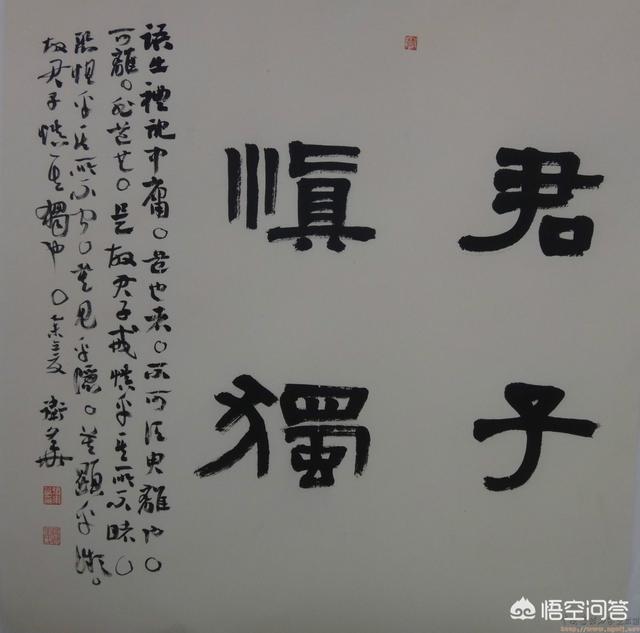 君子
慎獨
語出禮記中庸。道也者。不可須臾離也。
可離。非道也。是故君子戒慎乎其所不睹。
恐惧乎其所不闻。莫見乎隱。莫顯乎微。
故君子慎其獨也。
悟空问答